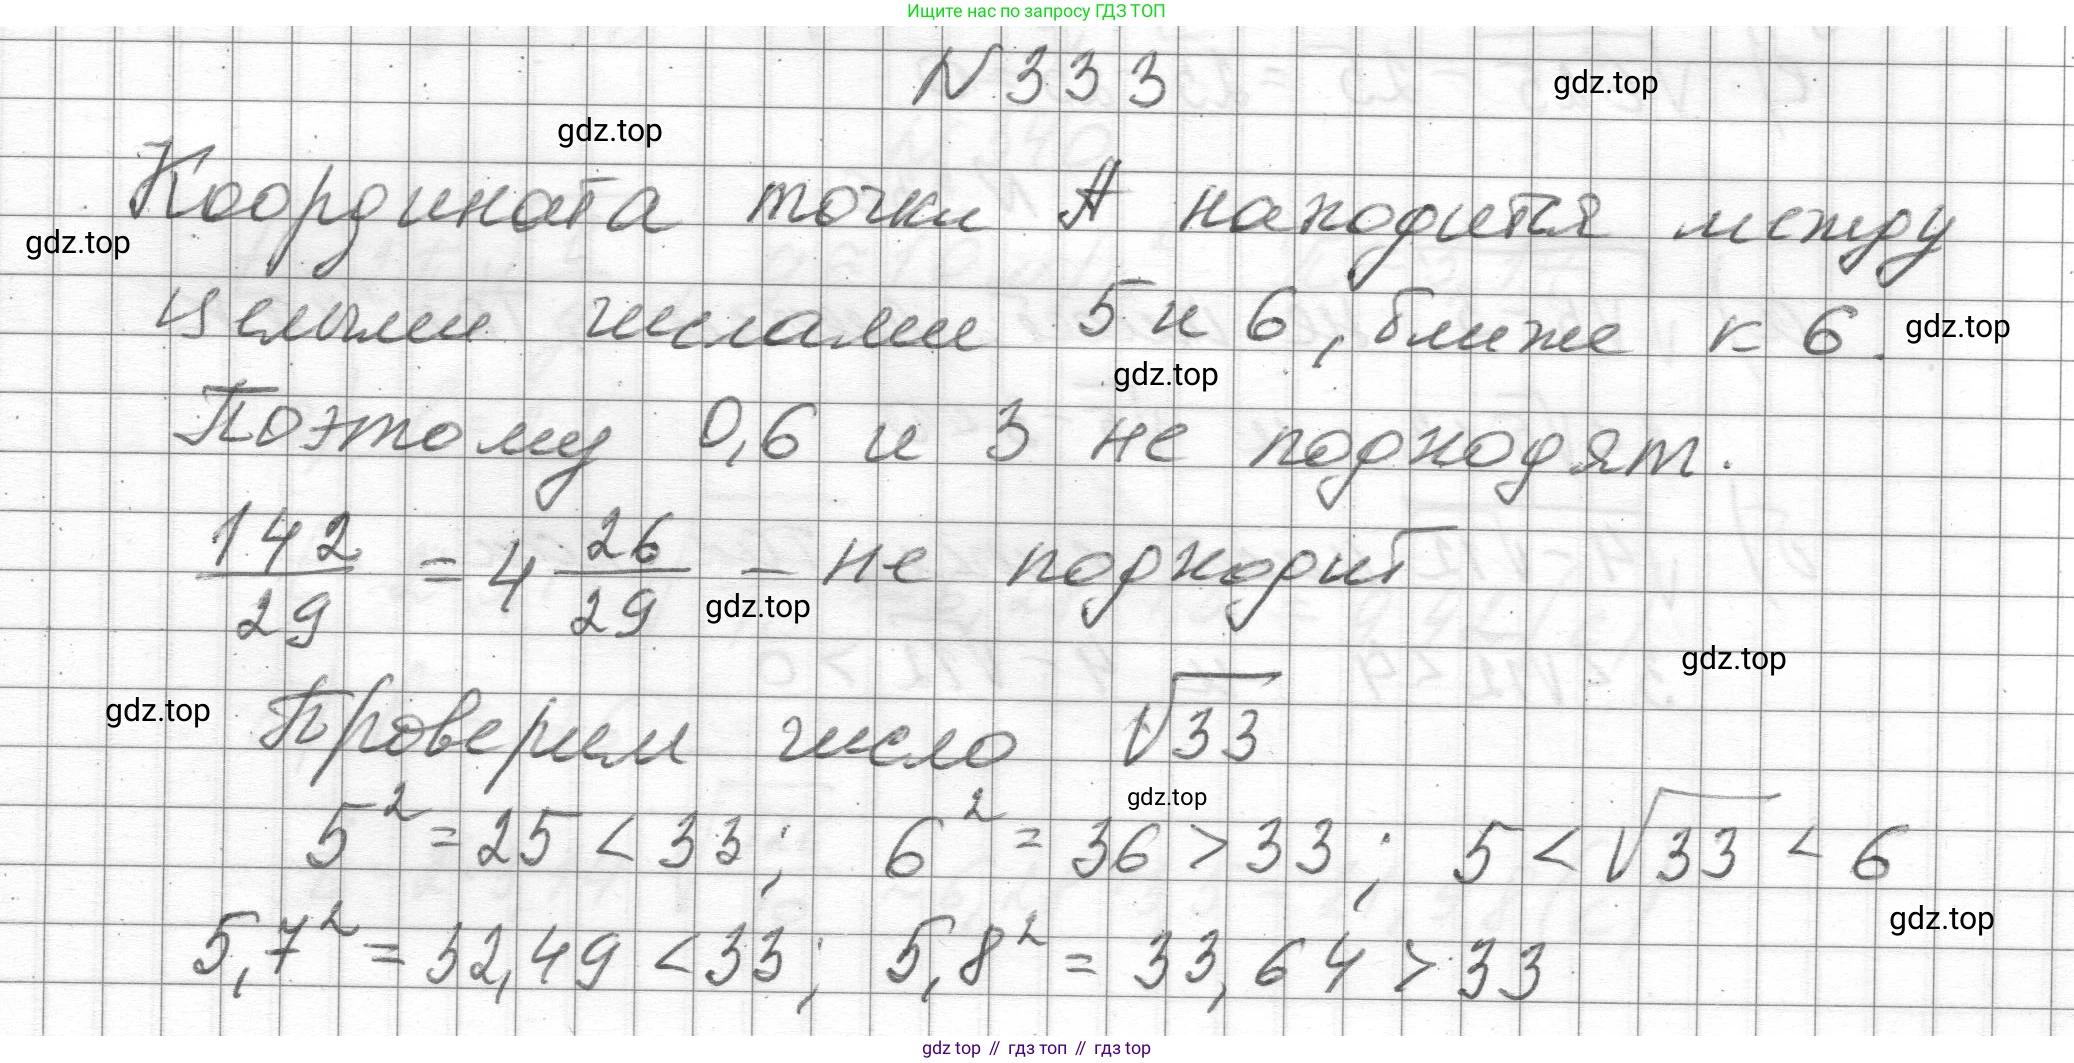 Ищите нас по запросу ГДЗ ТОП
N 333
gdz.top
gdz.top
Координата точки A находится между
gdz.top
целыми числами 5 и 6, ближе к 6.
gdz.top
gdz.top
Поэтому 0,6 и 3 не подходят.
142/29 = 4 26/29 – не подходит
gdz.top
gdz.top
gdz.top
Проверим число √33
gdz.top
5² = 25 < 33; 6² = 36 > 33; 5 < √33 < 6
gdz.top
5,7² = 32,49 < 33; 5,8² = 33,64 > 33
gdz top // гдз топ // гдз top